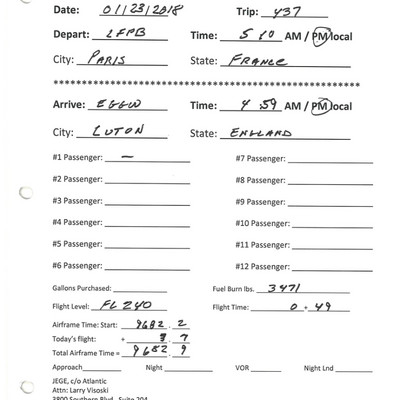 Date: 01/23/2018 Trip: 437
Depart: LFPB Time: 5:10 AM / PM local
City: PARIS State: FRANCE
****************************************************************
Arrive: EGGW Time: 4:59 AM / PM local
City: LUTON State: ENGLAND
#1 Passenger: — #7 Passenger:
#2 Passenger: #8 Passenger:
#3 Passenger: #9 Passenger:
#4 Passenger: #10 Passenger:
#5 Passenger: #11 Passenger:
#6 Passenger: #12 Passenger:
Gallons Purchased: Fuel Burn lbs. 3471
Flight Level: FL 240 Flight Time: 0 + 49
Airframe Time: Start: 9682.2
Today's flight: + .7
Total Airframe Time = 9682.9
Approach Night VOR Night Lnd
JEGE, c/o Atlantic
Attn: Larry Visoski
3800 Southern Blvd., Suite 204